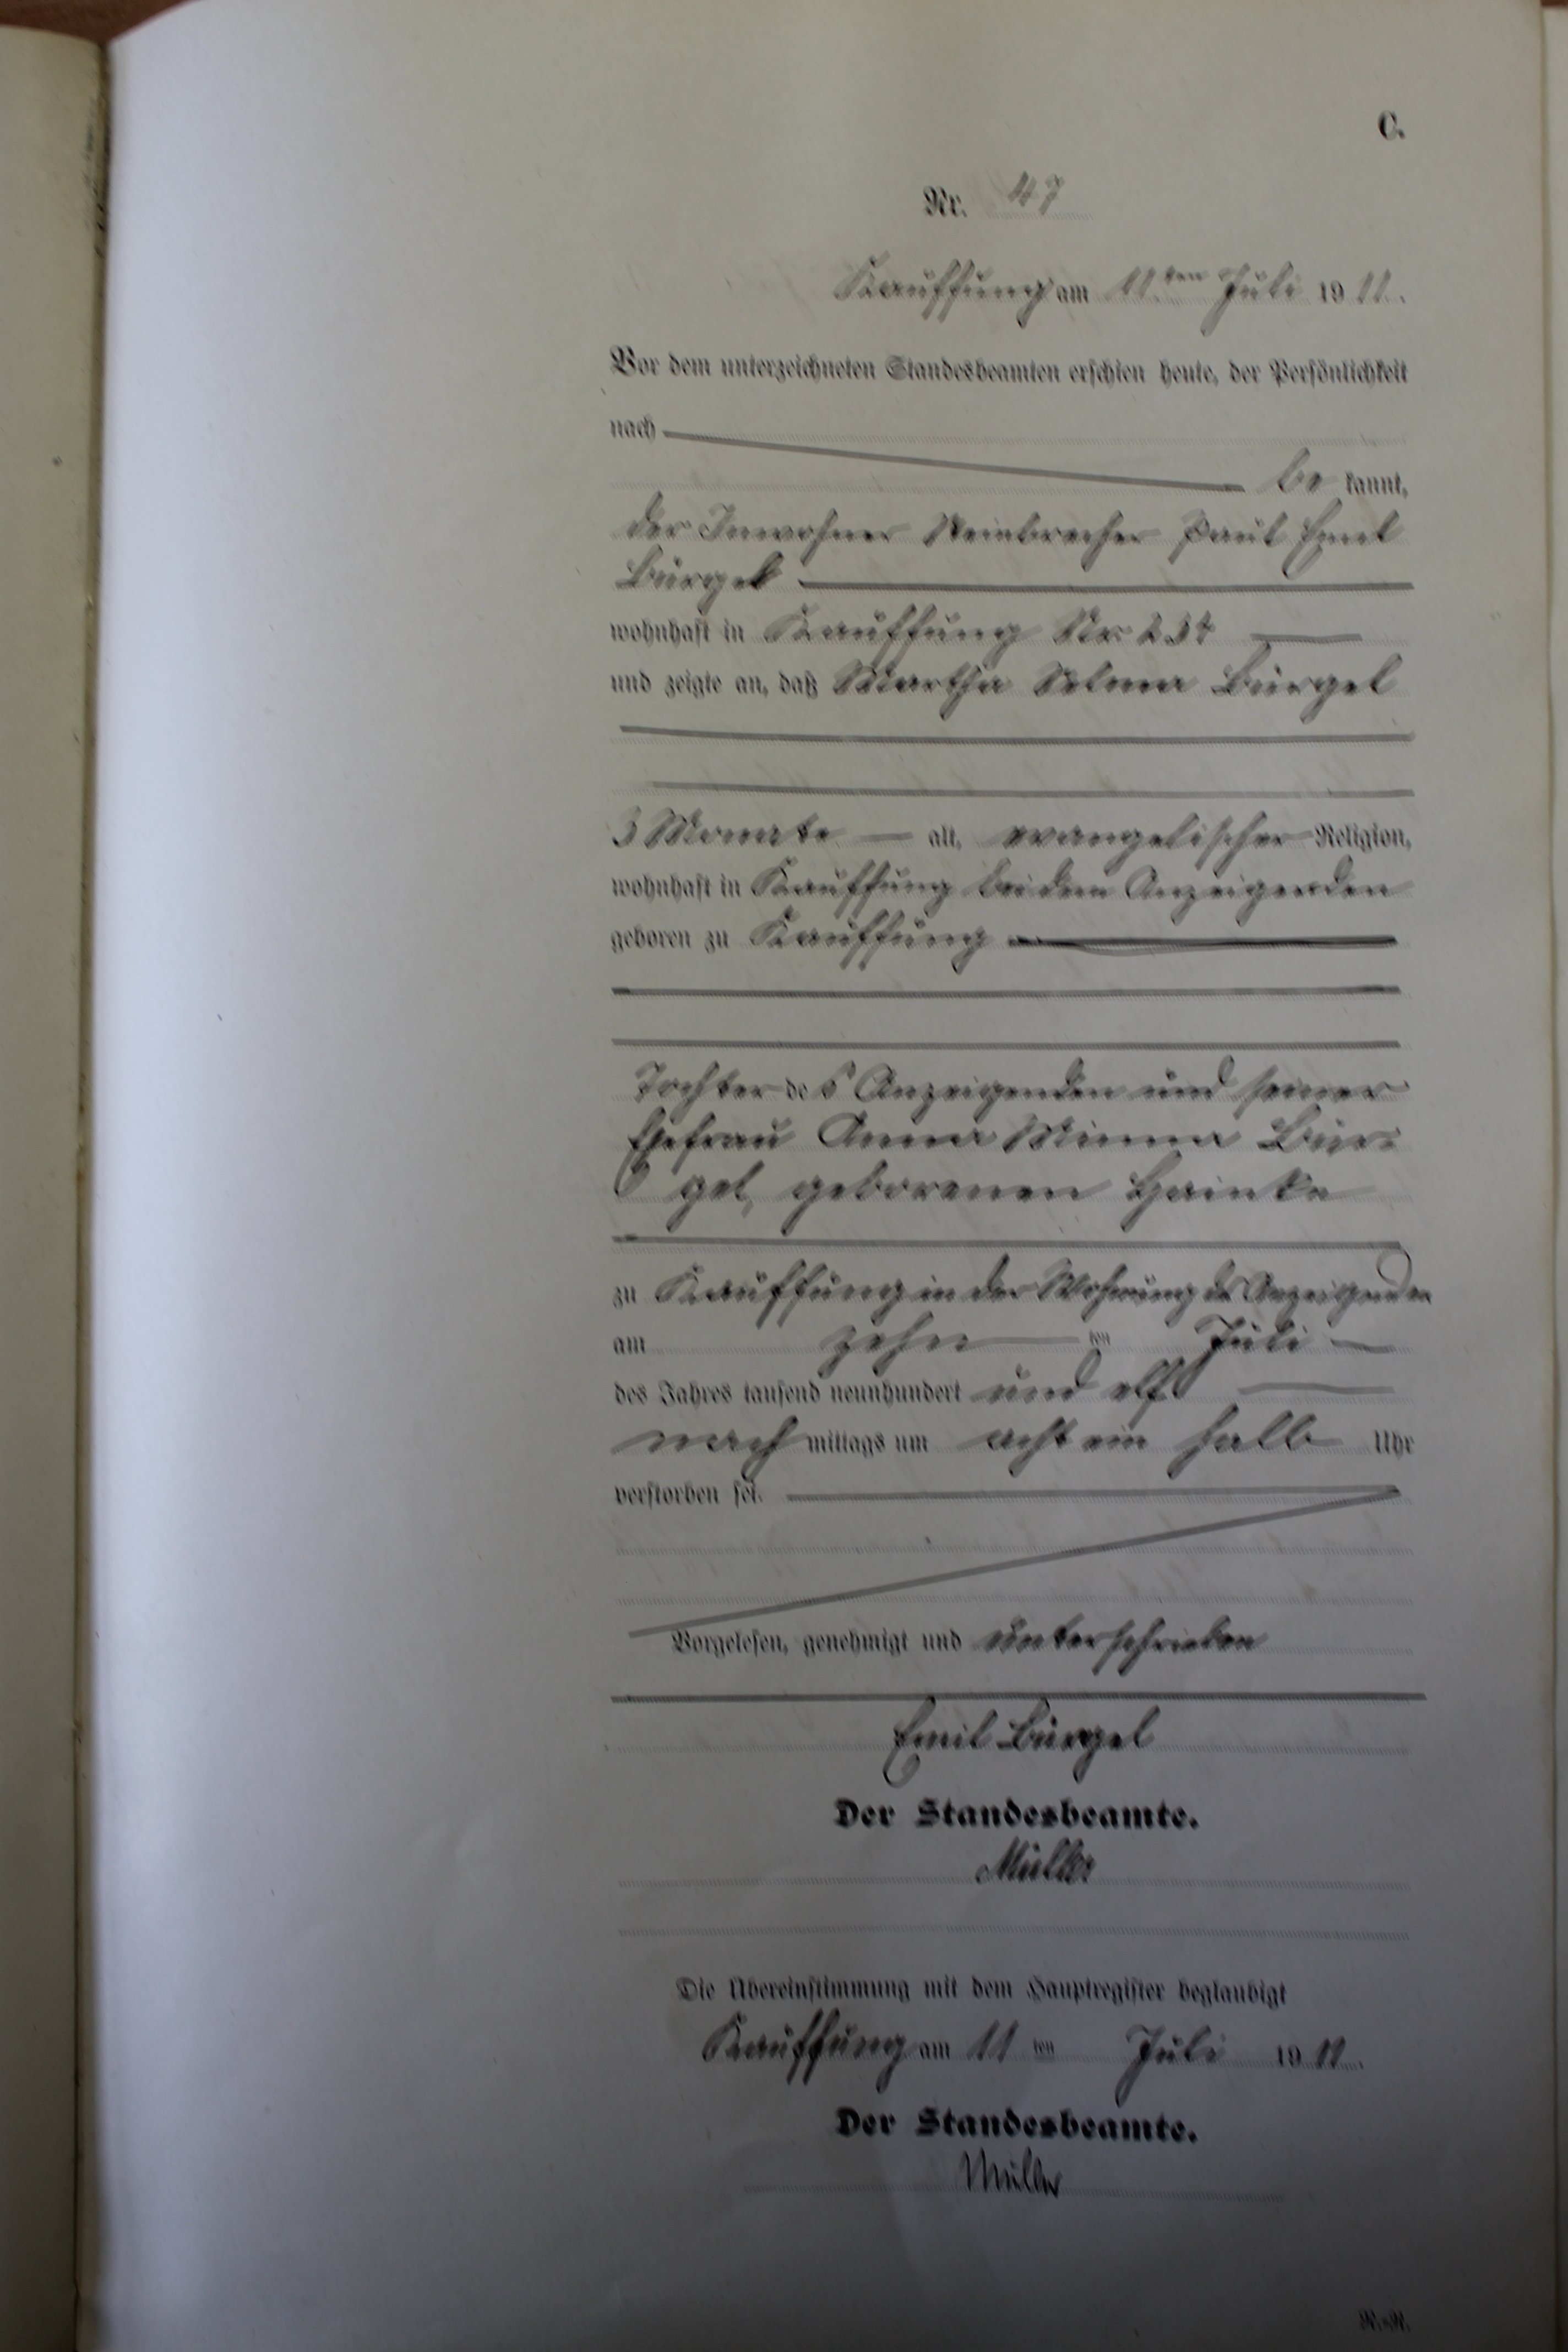 C.
Nr. 47
Kauffung am 11ten Juli 1911.
Vor dem unterzeichneten Standesbeamten erschien heute, der Persönlichkeit
nach
be kannt,
der Inwohner Steinbrecher Paul Emil
Bürgel
wohnhaft in Kauffung Nr. 234
und zeigte an, daß Martha Selma Bürgel
3 Monate alt, evangelischer Religion,
wohnhaft in Kauffung bei dem Anzeigenden
geboren zu Kauffung
Tochter des Anzeigenden und seiner
Ehefrau Anna Minna Bür-
gel, geborenen Hainke
zu Kauffung in der Wohnung des Anzeigenden
am zehn ten Juli
des Jahres tausend neunhundert und elf
nach mittags um acht ein halb Uhr
verstorben sei.
Vorgelesen, genehmigt und unterschrieben
Emil Bürgel
Der Standesbeamte.
Müller
Die Übereinstimmung mit dem Hauptregister beglaubigt
Kauffung am 11 ten Juli 1911.
Der Standesbeamte.
Müller